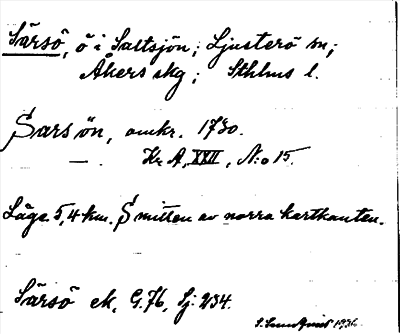 Särsö, ö i Saltsjön; Ljusterö sn;
Åkers skg; Sthlms l.
Sarsön, omkr. 1730.
—. Kr. A, XXII, N:o 15.
Läge 5,4 km. S mitten av norra kartkanten.
Särsö ek, G.76, Sj: 234.
S. Lundqvist 1936